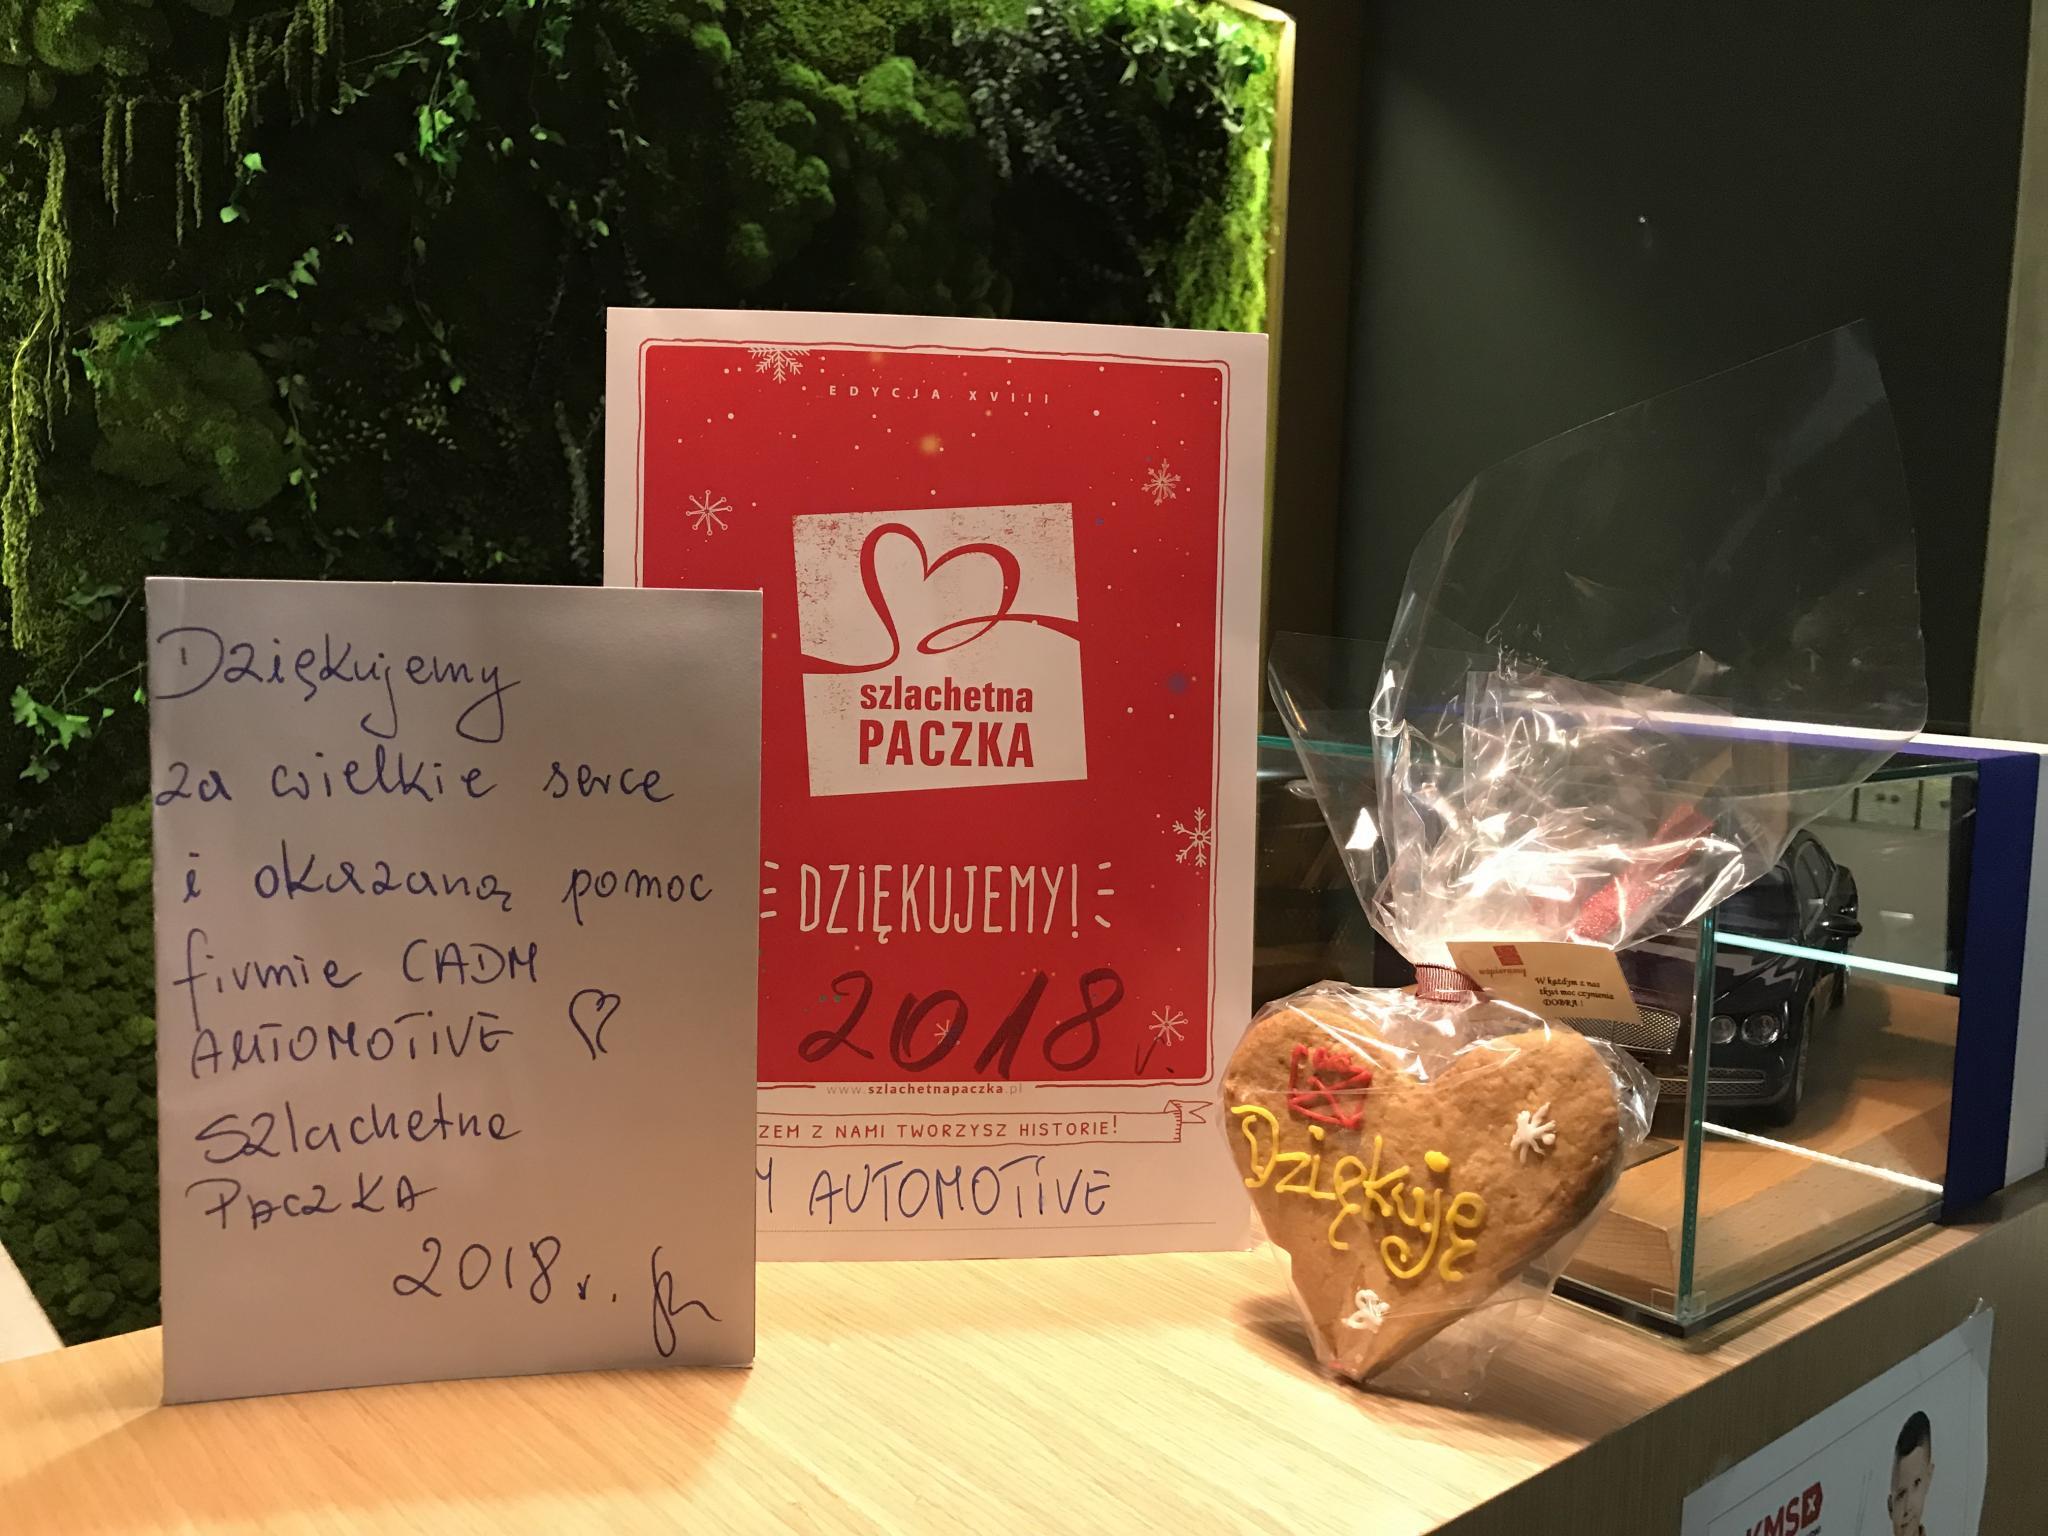 Dziękujemy
za wielkie serce
i okazaną pomoc
firmie CADM
AUTOMOTIVE
Szlachetna
PACZKA
2018 r.
EDYCJA XVIII
szlachetna
PACZKA
DZIĘKUJEMY!
2018 r.
www.szlachetnapaczka.pl
ZEM Z NAMI TWORZYSZ HISTORIE!
M AUTOMOTIVE
wspieramy
W każdym z nas
tkwi moc czynienia
DOBRA!
Dziękuję
KMS X